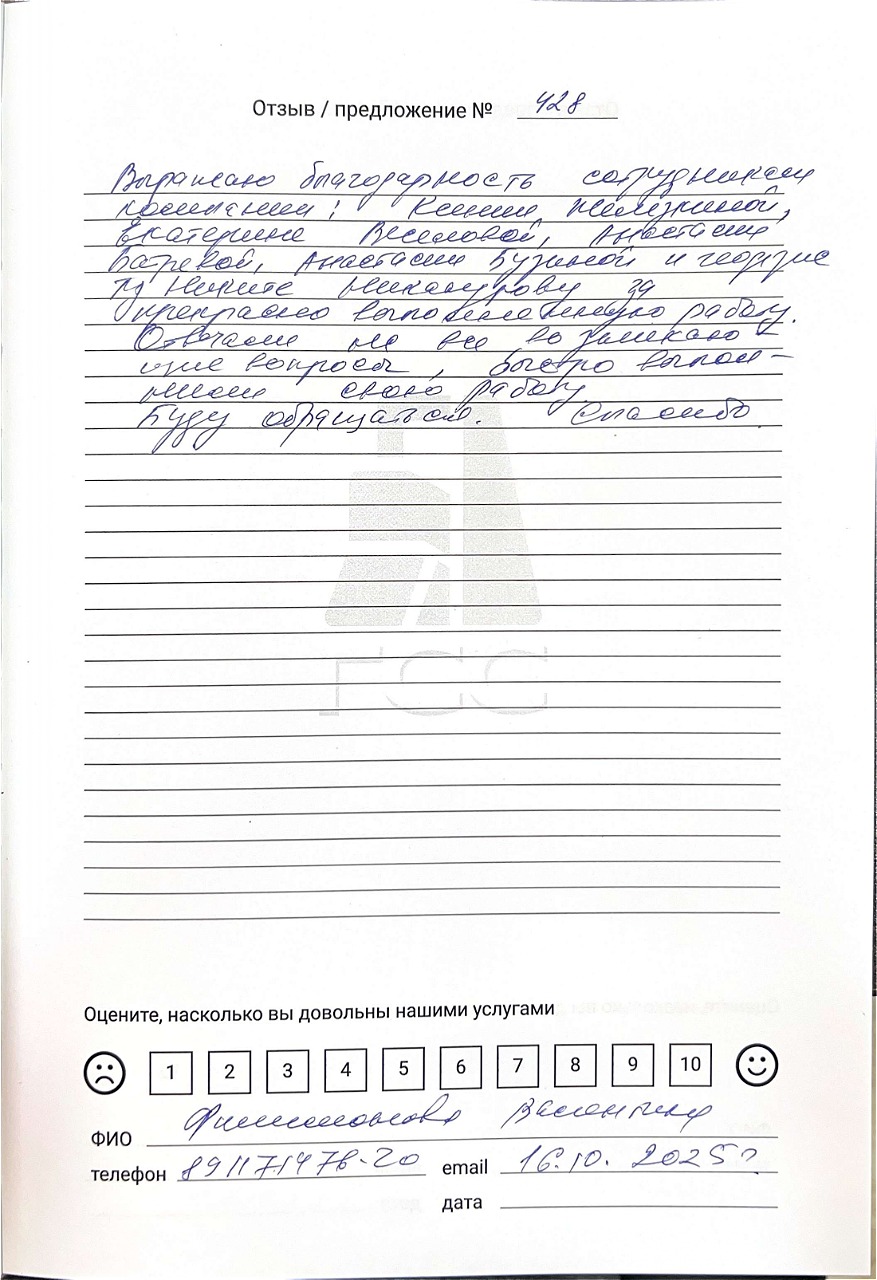 Отзыв / предложение № 428
Выражаю благодарность сотрудникам
компании: Ксении Немизкиной,
Екатерине Веселовой, Анастасии
Багревой, Анастасии Бузиной и геодезис
ту Никите Никанурову за
прекрасно выполненную работу.
Отвечали на все возникаю-
щие вопросы, быстро выпол-
няли свою работу.
Буду обращаться. Спасибо.
ГСС
Оцените, насколько вы довольны нашими услугами
1 2 3 4 5 6 7 8 9 10
ФИО Филимонова Валентина
телефон 891171478-20 email 16.10. 2025г
дата